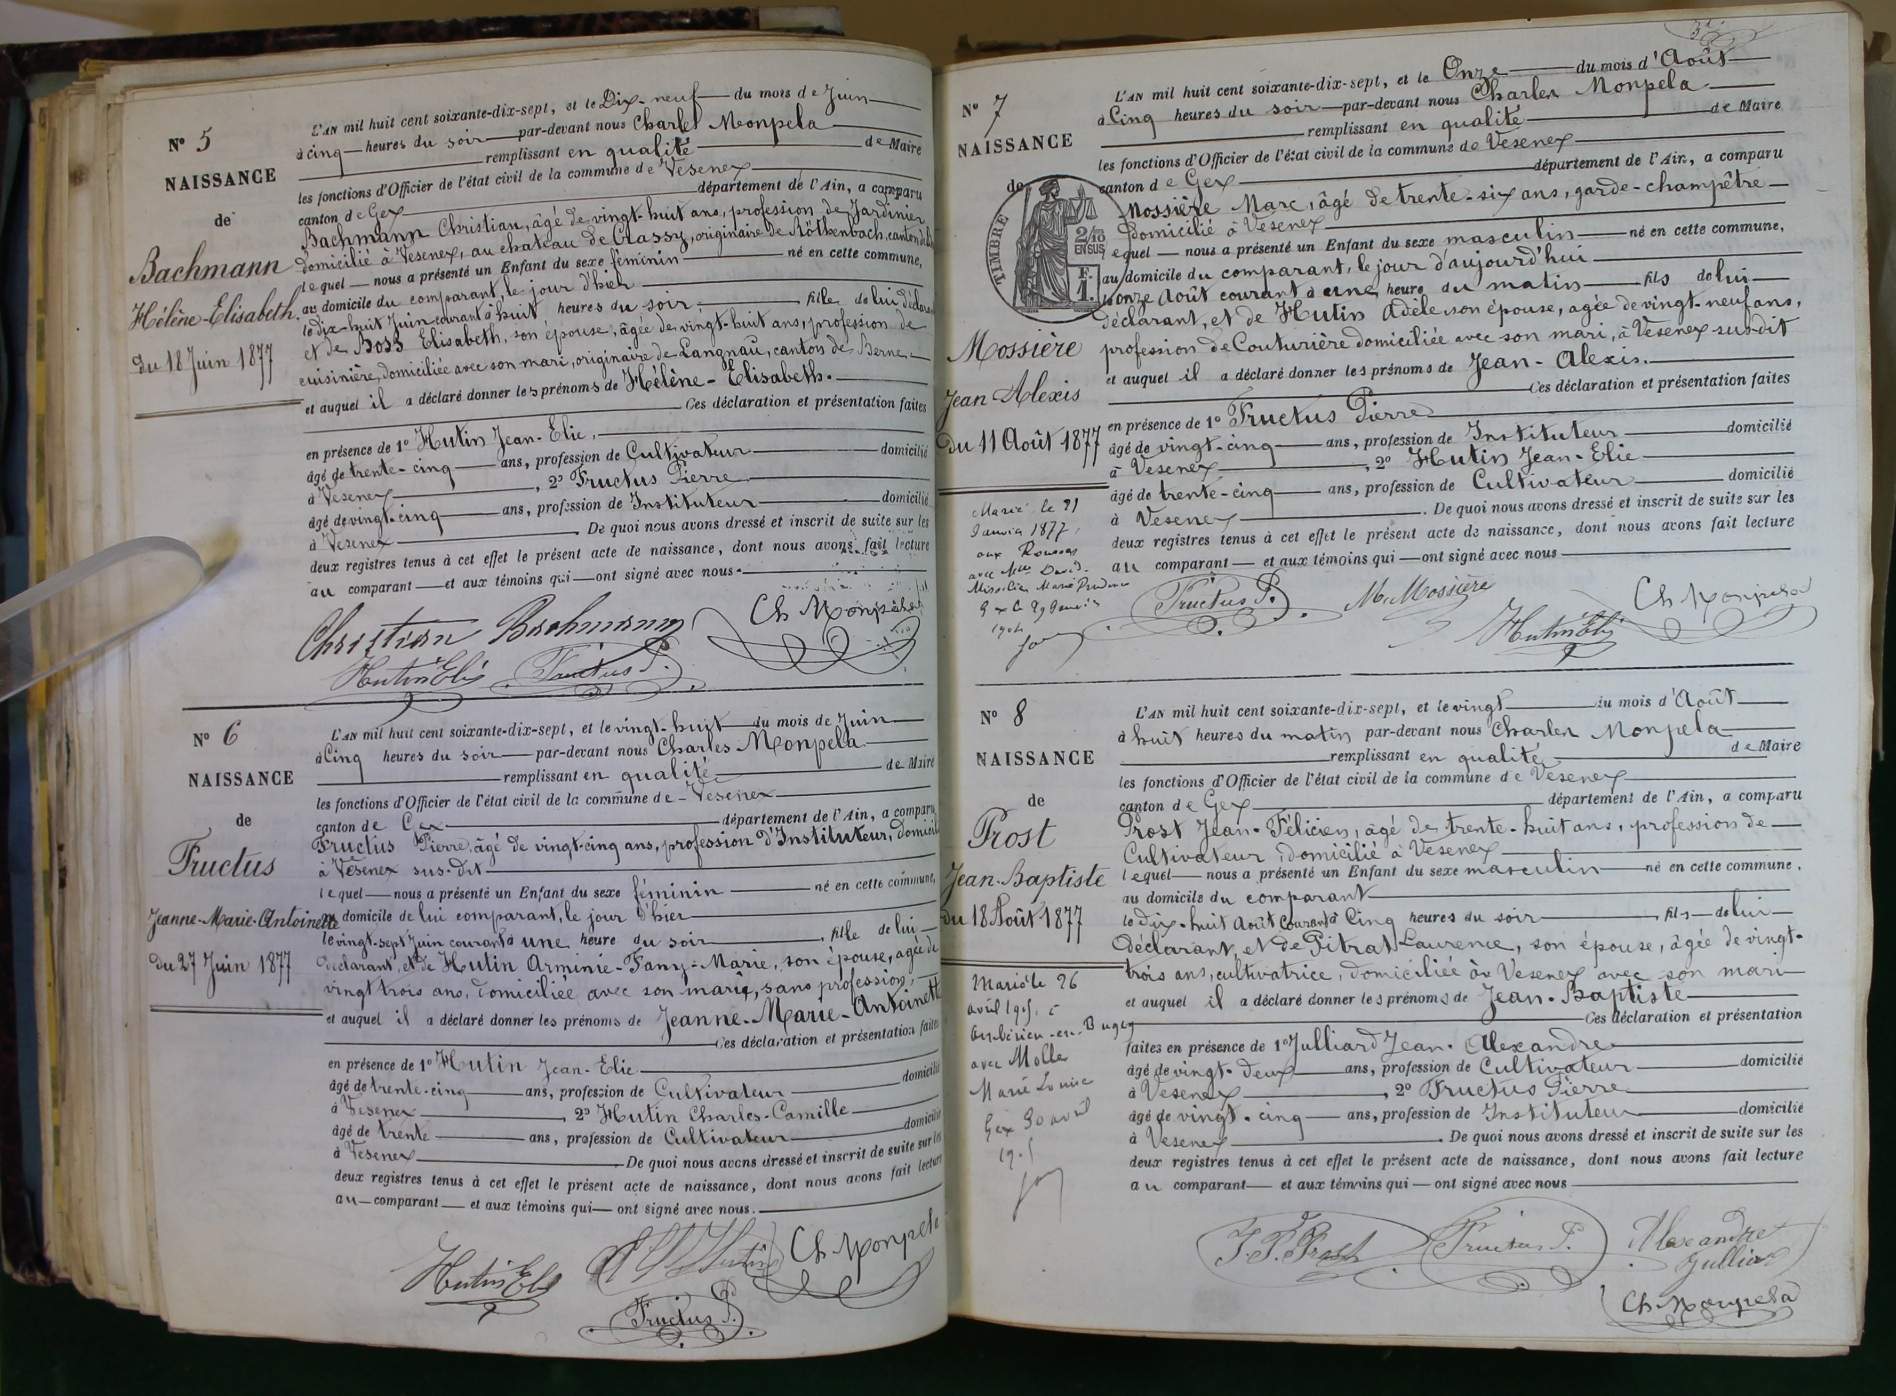 N° 5
NAISSANCE
de
Bachmann
Hélène-Elisabeth.
du 18 Juin 1877
L'AN mil huit cent soixante-dix-sept, et le Dix-neuf du mois de Juin
à cinq heures du soir par-devant nous Charles Monpela
remplissant en qualité de Maire
les fonctions d'Officier de l'état civil de la commune de Vesenex
canton de Gex département de l'Ain, a comparu
Bachmann Christian, âgé de vingt-huit ans, profession de Jardinier
domicilié à Vesenex, au chateau de Crassy, originaire de Röthenbach, canton de
lequel nous a présenté un Enfant du sexe féminin né en cette commune,
au domicile du comparant, le jour d'hier
le dix-huit Juin courant à huit heures du soir, fille de lui déclarant
et de Boss Elisabeth, son épouse, âgée de vingt-huit ans, profession de
cuisinière, domiciliée avec son mari, originaire de Langnau, canton de Berne
et auquel il a déclaré donner les prénoms de Hélène-Elisabeth.
Ces déclaration et présentation faites
en présence de 1° Hutin Jean-Elie,
âgé de trente-cinq ans, profession de Cultivateur domicilié
à Vesenex, 2° Fructus Pierre
âgé de vingt-cinq ans, profession de Instituteur domicilié
à Vesenex De quoi nous avons dressé et inscrit de suite sur les
deux registres tenus à cet effet le présent acte de naissance, dont nous avons fait lecture
au comparant et aux témoins qui ont signé avec nous.
Christian Bachmann Ch Monpela
Hutin Elie Fructus P.
N° 6
NAISSANCE
de
Fructus
Jeanne-Marie-Antoinette
du 27 Juin 1877
L'AN mil huit cent soixante-dix-sept, et le vingt-huit du mois de Juin
à Cinq heures du soir par-devant nous Charles Monpela
remplissant en qualité de Maire
les fonctions d'Officier de l'état civil de la commune de Vesenex
canton de Gex département de l'Ain, a comparu
Fructus Pierre, âgé de vingt-cinq ans, profession d'Instituteur, domicilié
à Vesenex sus-dit
lequel nous a présenté un Enfant du sexe féminin né en cette commune,
au domicile de lui comparant, le jour d'hier
le vingt-sept Juin courant à une heure du soir, fille de lui
déclarant, et de Hutin Arminie-Fany-Marie, son épouse, agée de
vingt trois ans, domiciliée avec son marie, sans profession,
et auquel il a déclaré donner les prénoms de Jeanne-Marie-Antoinette
Ces déclaration et présentation faites
en présence de 1° Hutin Jean-Elie
âgé de trente-cinq ans, profession de Cultivateur domicilié
à Vesenex, 2° Hutin Charles-Camille
âgé de trente ans, profession de Cultivateur domicilié
à Vesenex De quoi nous avons dressé et inscrit de suite sur les
deux registres tenus à cet effet le présent acte de naissance, dont nous avons fait lecture
au comparant et aux témoins qui ont signé avec nous.
Hutin Elie Hutin Ch Monpela
Fructus P.
N° 7
NAISSANCE
de
TIMBRE
2/10
EN SUS
Mossière
Jean Alexis
Du 11 Août 1877
Marié le 21
Janvier
aux Rousses
avec Mlle David.
Gex le 29 Janvier
L'AN mil huit cent soixante-dix-sept, et le Onze du mois d'Août
à Cinq heures du soir par-devant nous Charles Monpela
remplissant en qualité de Maire
les fonctions d'Officier de l'état civil de la commune de Vesenex
canton de Gex département de l'Ain, a comparu
Mossière Marc, âgé de trente-six ans, garde-champêtre
domicilié à Vesenex
lequel nous a présenté un Enfant du sexe masculin né en cette commune,
au domicile du comparant, le jour d'aujourd'hui
le onze Août courant à une heure du matin fils de lui
déclarant, et de Hutin Adèle son épouse, agée de vingt-neuf ans,
profession de Couturière domiciliée avec son mari, à Vesenex susdit
et auquel il a déclaré donner les prénoms de Jean-Alexis.
Ces déclaration et présentation faites
en présence de 1° Fructus Pierre
âgé de vingt-cinq ans, profession de Instituteur domicilié
à Vesenex, 2° Hutin Jean-Elie
âgé de trente-cinq ans, profession de Cultivateur domicilié
à Vesenex. De quoi nous avons dressé et inscrit de suite sur les
deux registres tenus à cet effet le présent acte de naissance, dont nous avons fait lecture
au comparant et aux témoins qui ont signé avec nous
Fructus P. M. Mossière Ch Monpela
Hutin Elie
N° 8
NAISSANCE
de
Prost
Jean-Baptiste
du 18 Août 1877
Marié le 26
avril 1905 à
Ambérieu-en-Bugey
avec Mollex
Marie Louise
Gex 30 avril
1905
L'AN mil huit cent soixante-dix-sept, et le vingt du mois d'Août
à huit heures du matin par-devant nous Charles Monpela
remplissant en qualité de Maire
les fonctions d'Officier de l'état civil de la commune de Vesenex
canton de Gex département de l'Ain, a comparu
Prost Jean-Félicien, âgé de trente-huit ans, profession de
Cultivateur, domicilié à Vesenex
lequel nous a présenté un Enfant du sexe masculin né en cette commune,
au domicile du comparant
le Dix-huit Août Courant à Cinq heures du soir, fils de lui
déclarant, et de Pitrat Laurence, son épouse, âgée de vingt-
trois ans, cultivatrice, domiciliée à Vesenex avec son mari
et auquel il a déclaré donner les prénoms de Jean-Baptiste
Ces déclaration et présentation
faites en présence de 1° Julliard Jean-Alexandre
âgé de vingt-deux ans, profession de Cultivateur domicilié
à Vesenex, 2° Fructus Pierre
âgé de vingt-cinq ans, profession de Instituteur domicilié
à Vesenex. De quoi nous avons dressé et inscrit de suite sur les
deux registres tenus à cet effet le présent acte de naissance, dont nous avons fait lecture
au comparant et aux témoins qui ont signé avec nous
J. F. Prost Fructus P. Alexandre
Julliard
Ch Monpela